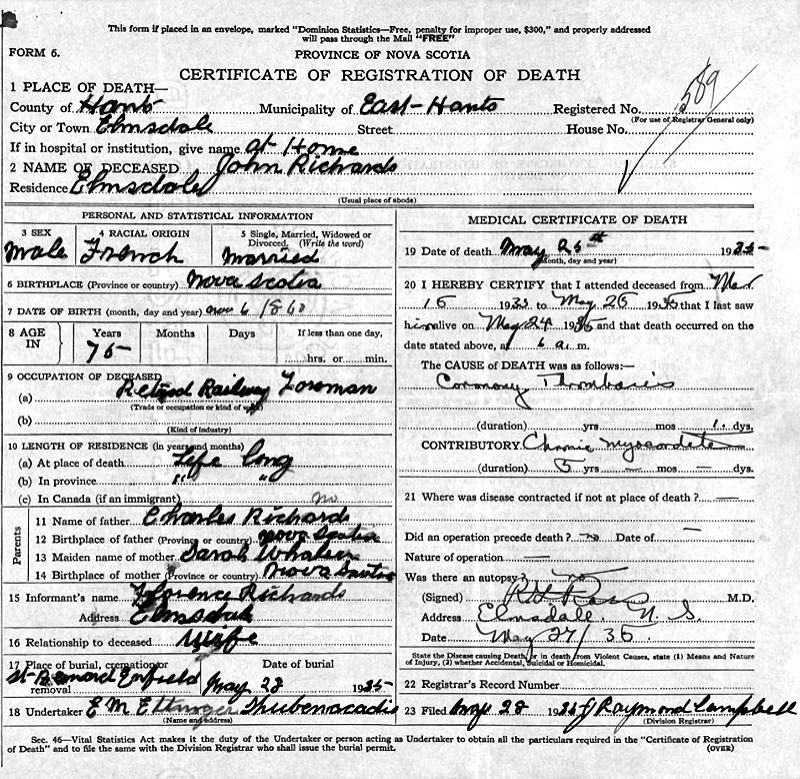 This form if placed in an envelope, marked "Dominion Statistics—Free, penalty for improper use, $300," and properly addressed
will pass through the Mail "FREE"
FORM 6.
PROVINCE OF NOVA SCOTIA
CERTIFICATE OF REGISTRATION OF DEATH
1 PLACE OF DEATH—
County of Hants Municipality of East-Hants Registered No. 589
(For use of Registrar General only)
City or Town Elmsdale Street House No.
If in hospital or institution, give name at Home
2 NAME OF DECEASED John Richards
Residence Elmsdale
(Usual place of abode)
PERSONAL AND STATISTICAL INFORMATION
3 SEX 4 RACIAL ORIGIN 5 Single, Married, Widowed or Divorced. (Write the word)
Male French Married
6 BIRTHPLACE (Province or country) Nova Scotia
7 DATE OF BIRTH (month, day and year) 6 1860
8 AGE IN Years Months Days If less than one day,
75 hrs. or min.
9 OCCUPATION OF DECEASED
(a) Retired Railway Foreman
(Trade or occupation or kind of work)
(b)
(Kind of industry)
10 LENGTH OF RESIDENCE (in years and months)
(a) At place of death Life long
(b) In province " "
(c) In Canada (if an immigrant) no
Parents
11 Name of father Charles Richards
12 Birthplace of father (Province or country) Nova Scotia
13 Maiden name of mother Sarah Whalen
14 Birthplace of mother (Province or country) Nova Scotia
15 Informant's name Florence Richards
Address Elmsdale
16 Relationship to deceased Wife
17 Place of burial, cremation or removal Date of burial
St Bernard Enfield May 28 1935
18 Undertaker E M Ettinger Shubenacadie
(Name and address)
MEDICAL CERTIFICATE OF DEATH
19 Date of death May 25th 1935
(Month, day and year)
20 I HEREBY CERTIFY that I attended deceased from Mar
15 193 to May 25 1935 that I last saw
him alive on May 24 1935 and that death occurred on the
date stated above, at 6 a. m.
The CAUSE of DEATH was as follows:—
Coronary Thrombosis
(duration) yrs mos 1 dys.
CONTRIBUTORY Chronic myocarditis
(duration) 5 yrs — mos — dys.
21 Where was disease contracted if not at place of death? —
Did an operation precede death? no Date of —
Nature of operation —
Was there an autopsy? no
(Signed) M.D.
Address Elmsdale. N. S.
Date May 27/35.
State the Disease causing Death, or in death from Violent Causes, state (1) Means and Nature
of Injury, (2) whether Accidental, Suicidal or Homicidal.
22 Registrar's Record Number
23 Filed May 28 1935 J Raymond Campbell
(Division Registrar)
Sec. 46—Vital Statistics Act makes it the duty of the Undertaker or person acting as Undertaker to obtain all the particulars required in the "Certificate of Registration
of Death" and to file the same with the Division Registrar who shall issue the burial permit.
(OVER)